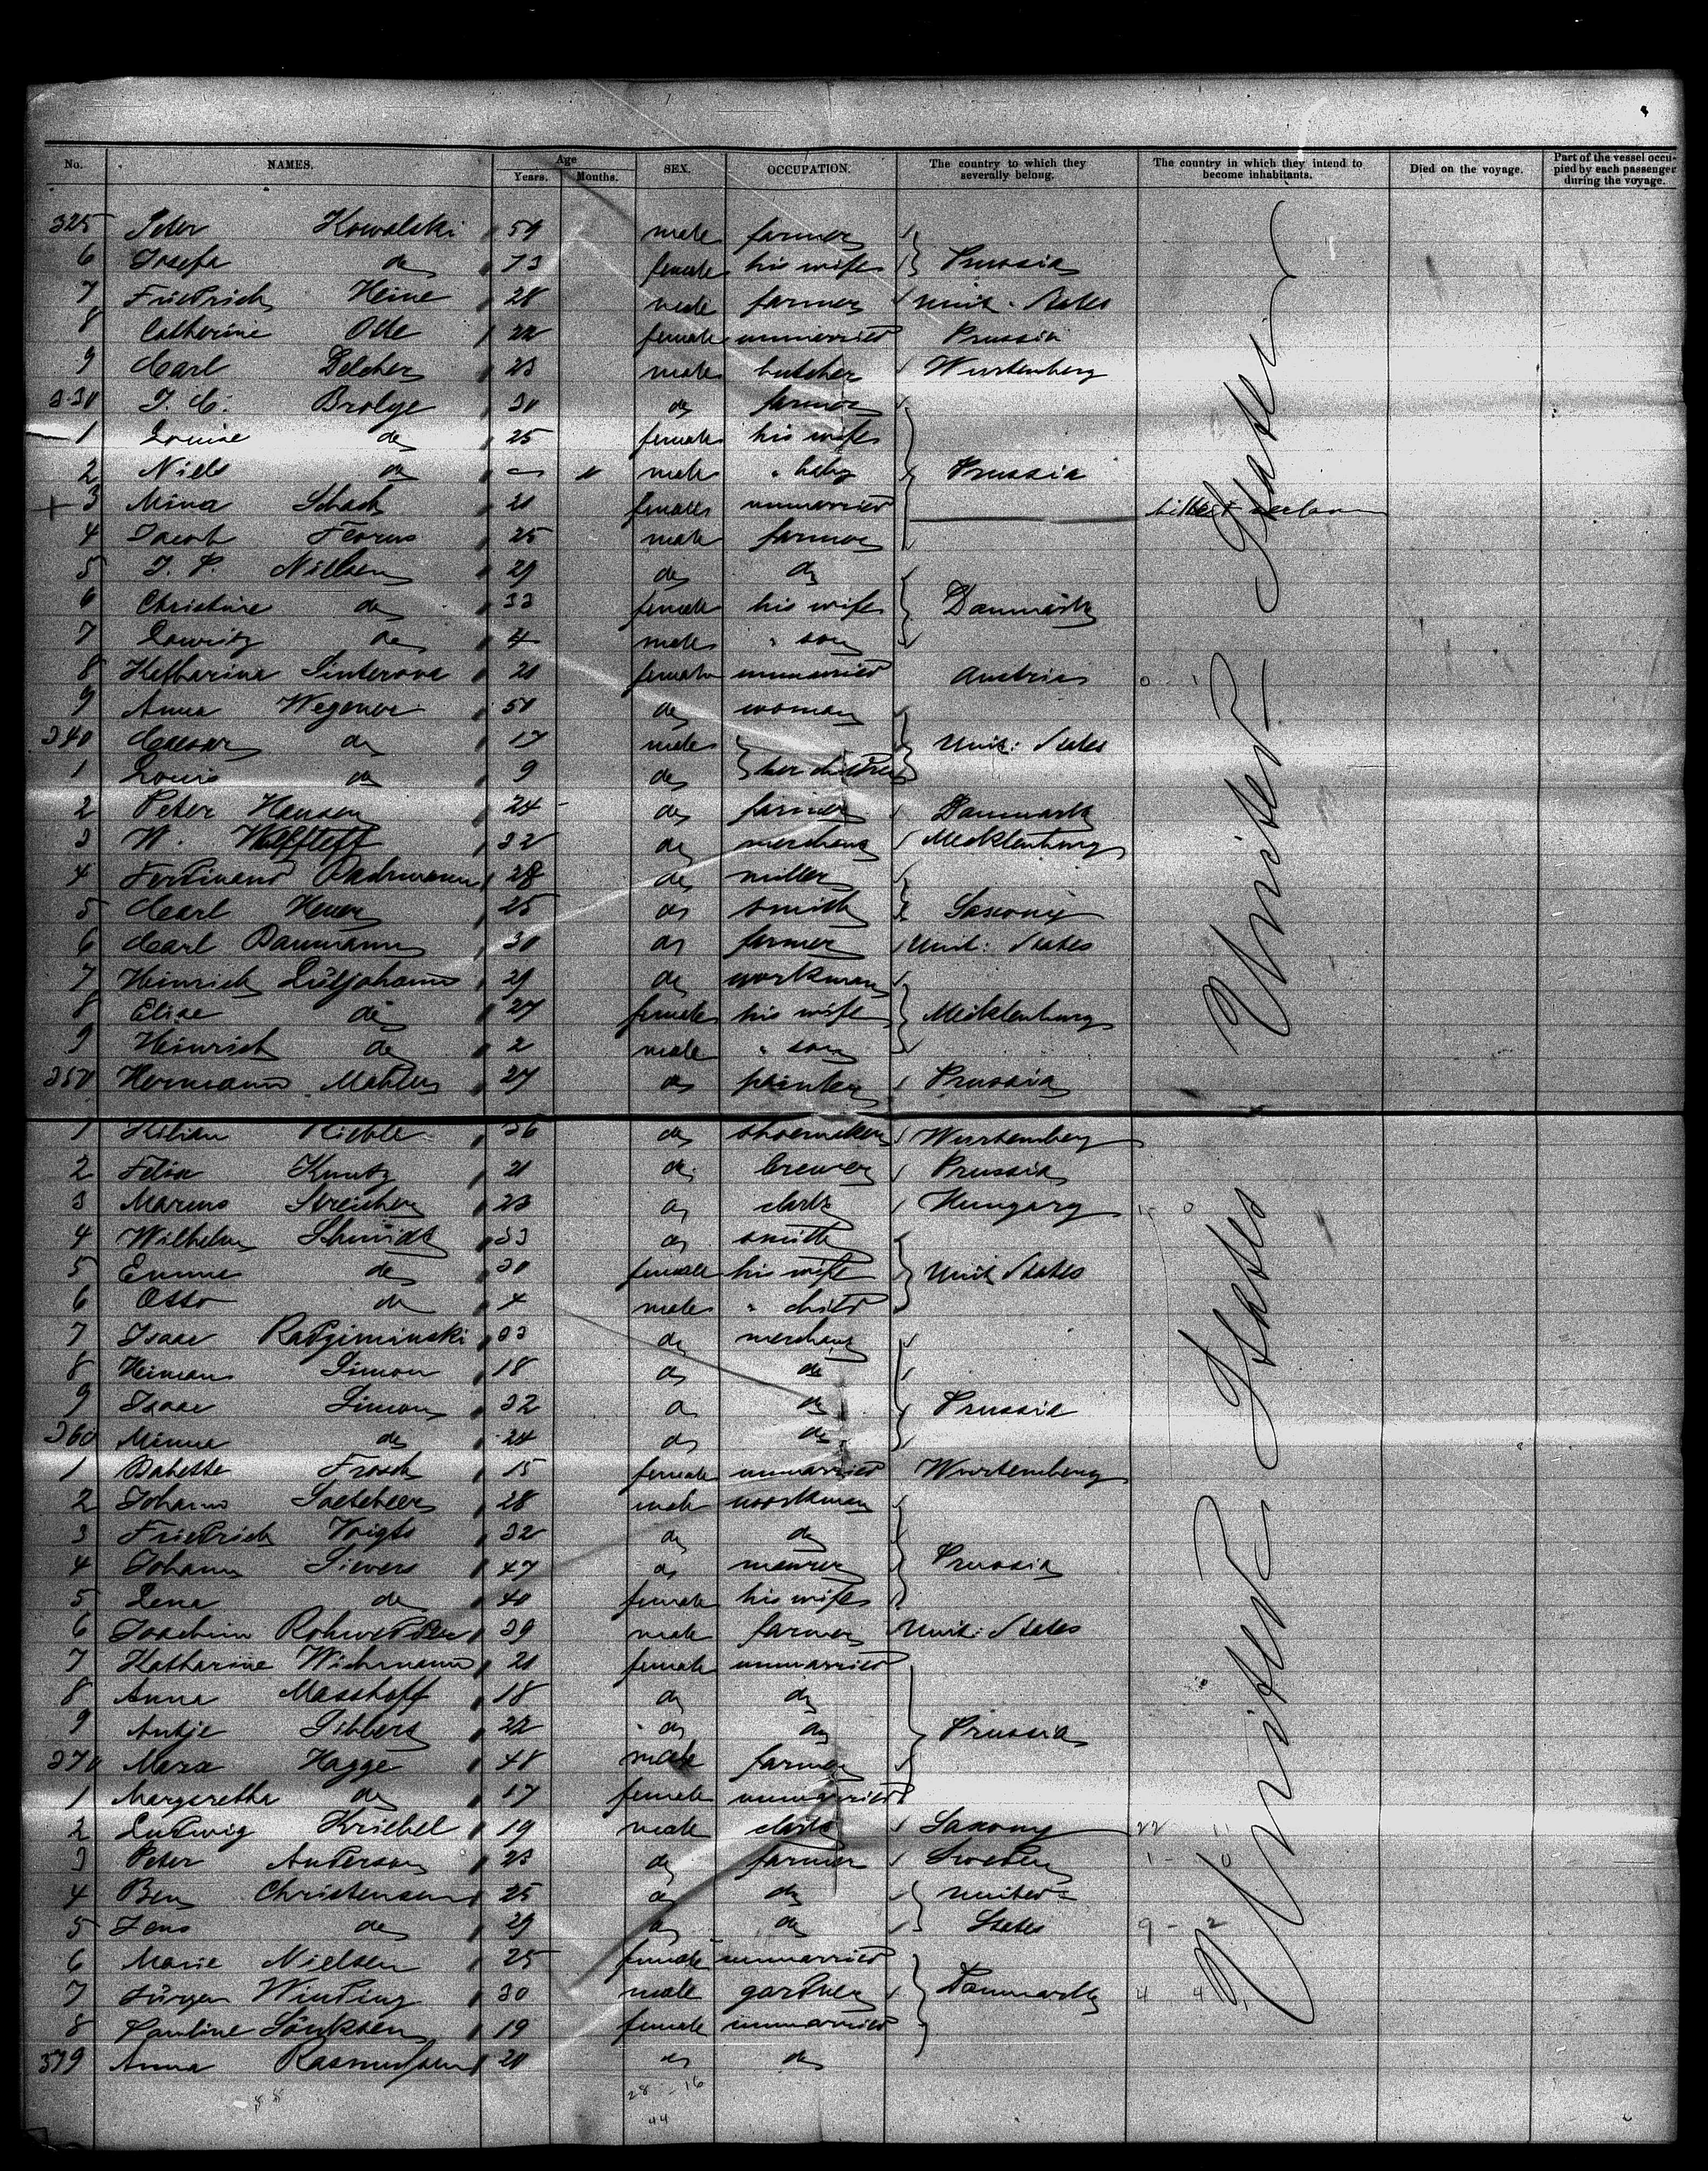 No. NAMES. Age Years. Months. SEX. OCCUPATION. The country to which they severally belong. The country in which they intend to become inhabitants. Died on the voyage. Part of the vessel occupied by each passenger during the voyage.
325 Peter Kowalski 59 male farmer
6 Josefa do 73 female his wife Prussia
7 Friedrich Heine 28 male farmer Unit. States
8 Catherine Olle 22 female unmarried Prussia
9 Carl Belcher 23 male butcher Wurtemberg
330 J. C. Brolge 30 do farmer
1 Louise do 25 female his wife
2 Niels do male " baby Prussia
3 Mina Schack 21 female unmarried
4 Jacob 25 male farmer
5 J. P. Nielsen 29 do do
6 Christine do 33 female his wife Danmark
7 Lawritz do 4 male " son
8 Katharina Sinterova 21 female unmarried Austria
9 Anna Wegener 50 do woman
340 Caesar do 17 male Unit: States
1 Louis do 9 do her children
2 Peter Hansen 24 do farmer Danmark
3 W. 32 do merchant Mecklenburg
4 Ferdinand 28 do miller
5 Carl Heuer 25 do smith Saxony
6 Carl Baumann 30 do farmer Unit: States
7 Heinrich Lütjohann 29 do workman
8 Elise do 27 female his wife Mecklenburg
9 Heinrich do 2 male " son
350 Hermann Mahlen 27 do painter Prussia
1 Kilian Riehle 36 do shoemaker Wurtemberg
2 Felix Kuntz 21 do brewer Prussia
3 Marcus Streicher 23 do clerk Hungary
4 Wilhelm Schmidt 33 do smith
5 Emma do 30 female his wife Unit States
6 Otto do 4 male " child
7 Isaac Radziminski 33 do merchant
8 Heiman Simon 18 do do
9 Isaac Simon 32 do do Prussia
360 Minna do 24 do do
1 Babette Frosch 15 female unmarried Wurtemberg
2 Johann Soetebeer 28 male workman
3 Friedrich Voigts 32 do do
4 Johann Sievers 47 do meurer Prussia
5 Lena do 40 female his wife
6 Joachim Rohwedder 39 male farmer Unit: States
7 Katharine Wichmann 21 female unmarried
8 Anna Masshoff 18 do do
9 Antje Sibbers 22 do do Prussia
370 Marx Hagge 48 male farmer
1 Margaretha do 17 female unmarried
2 Ludwig Kriebel 19 male clerk Saxony
3 Peter Anderson 23 do farmer Sweden
4 Ben Christensen 25 do do United
5 Jens do 29 do do States 9 - 2
6 Marie Nielsen 25 female unmarried
7 Jürgen Winding 30 male gardner Danmark 4 4
8 Pauline Sönksen 19 female unmarried
379 Anna Rasmussen 20 do do
28 - 16
44
United States
United States